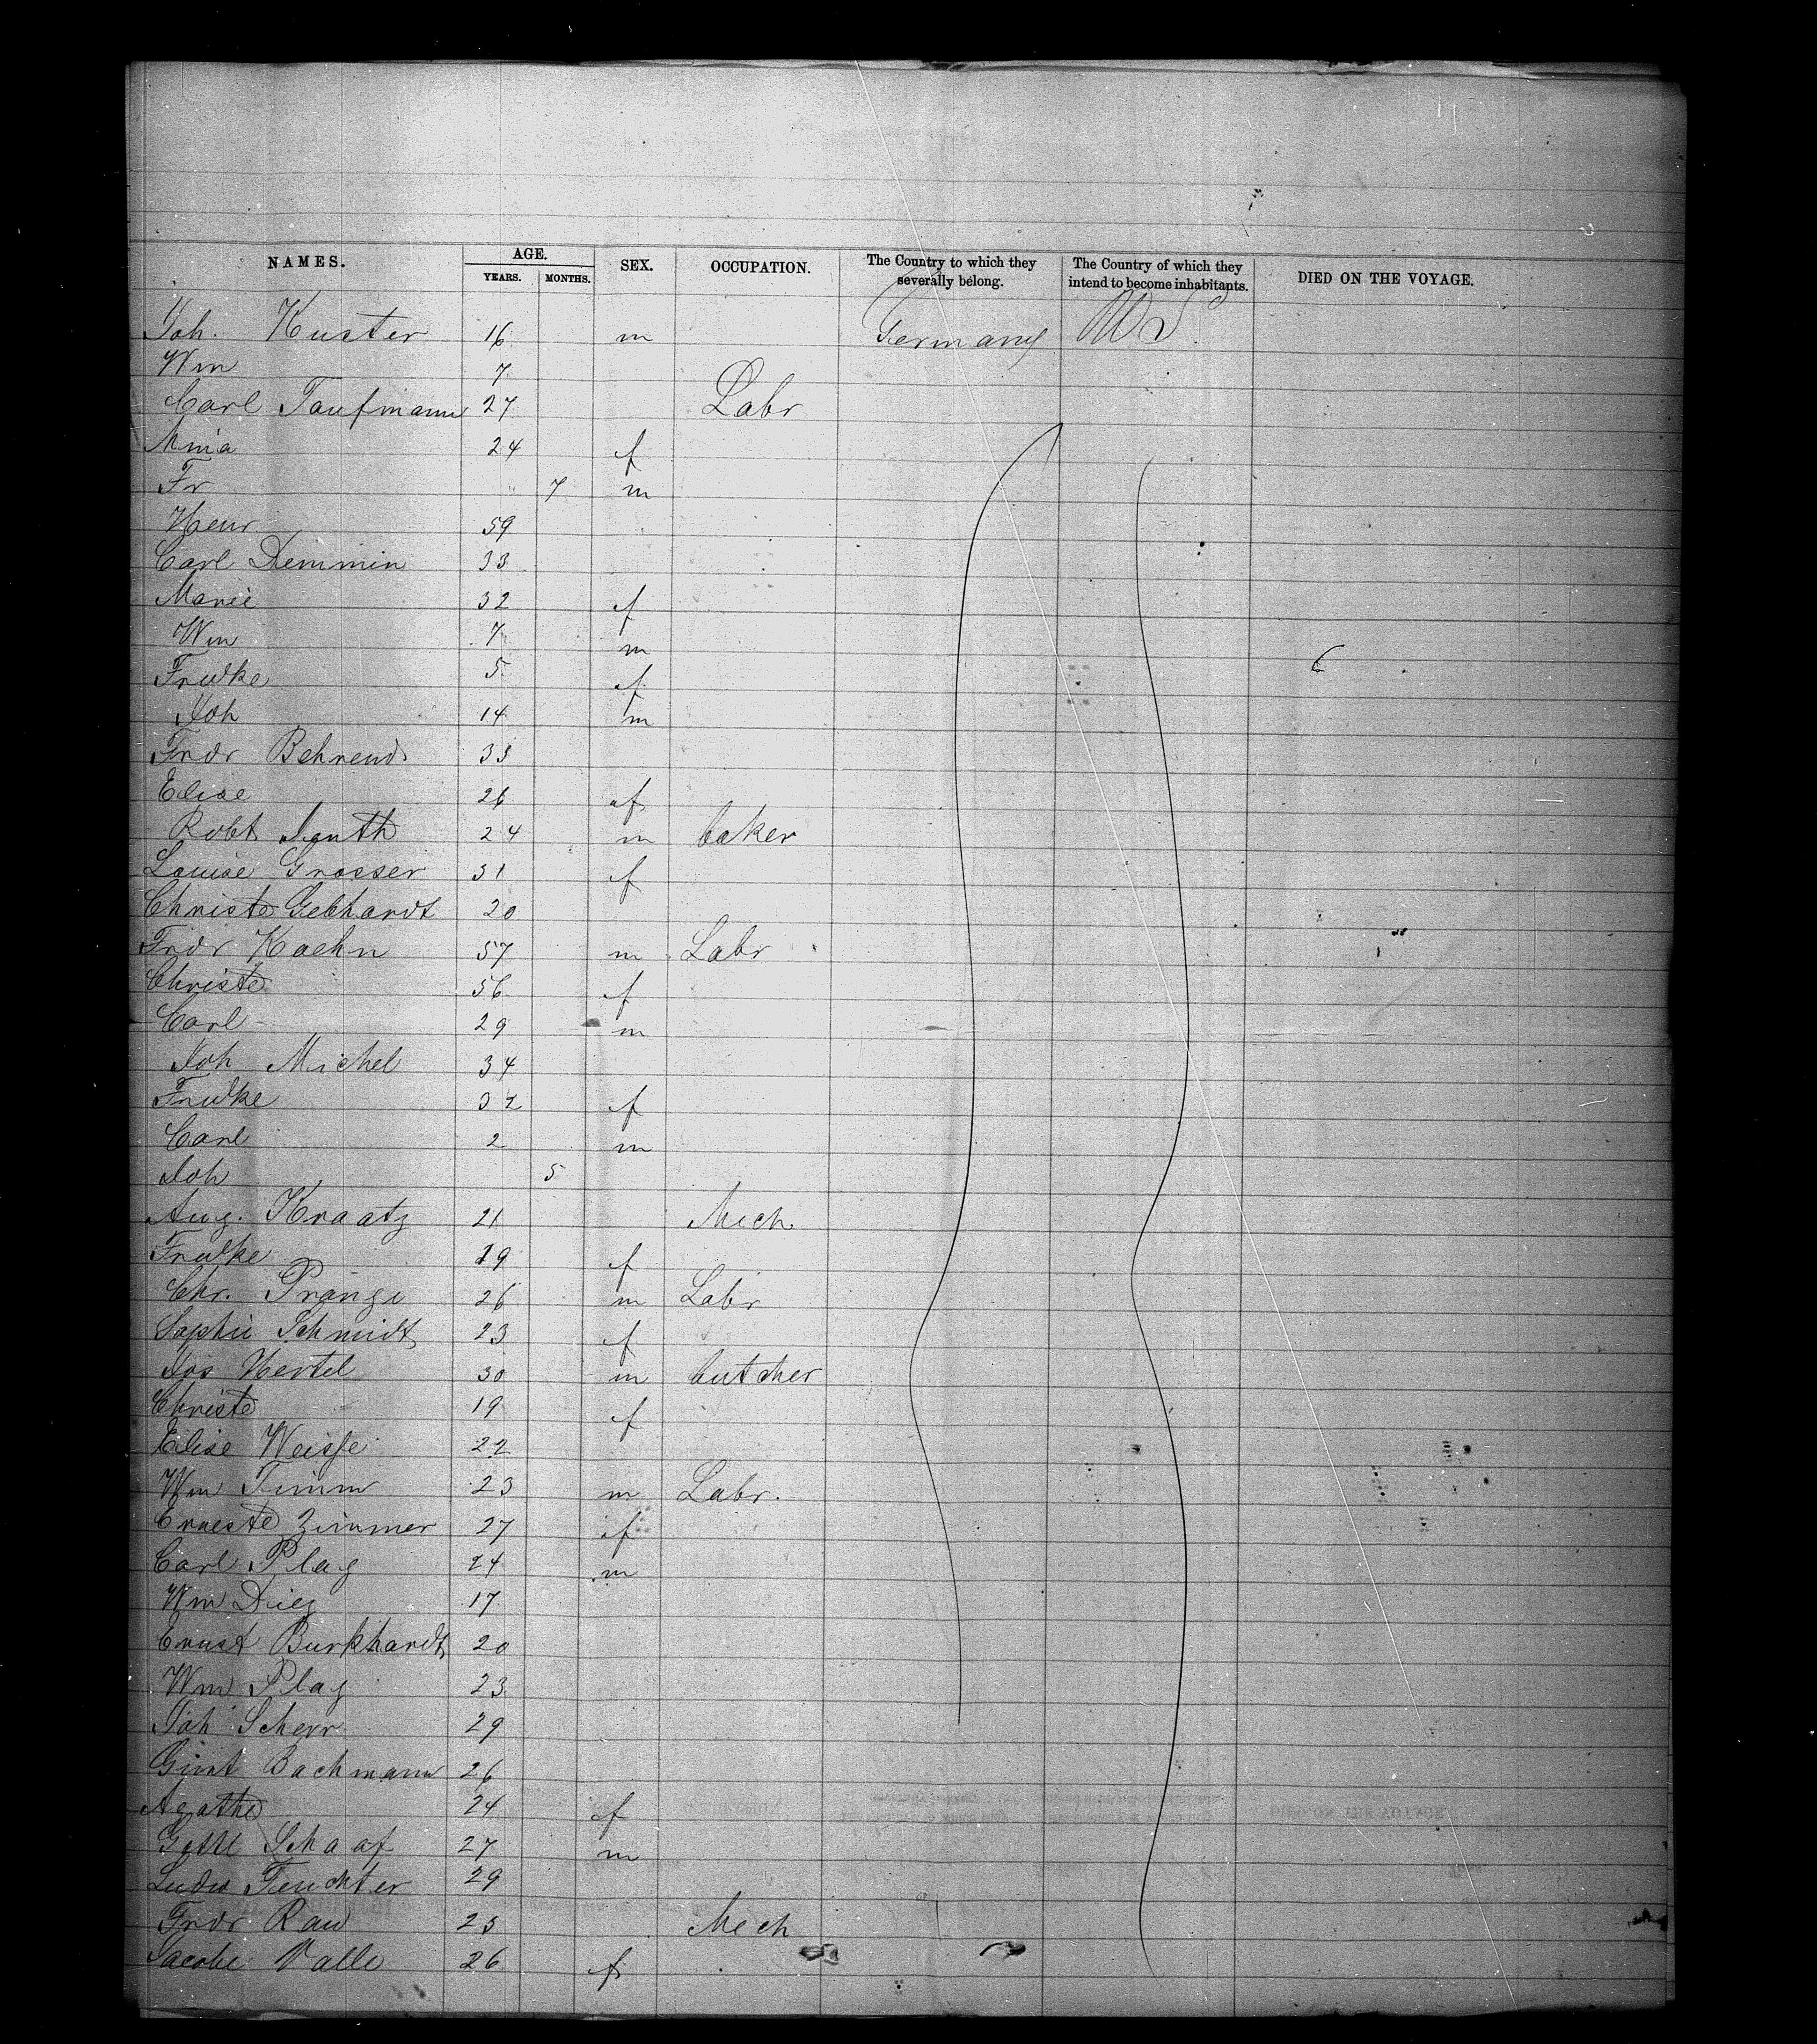 NAMES. AGE. YEARS. MONTHS. SEX. OCCUPATION. The Country to which they severally belong. The Country of which they intend to become inhabitants. DIED ON THE VOYAGE.
Joh. Kuster 16 m Germany US
Wm 7
Carl Taufmann 27 Labr
Mina 24 f
Fr 7 m
Henr 59
Carl Demmin 33
Marie 32 f
Wm 7 m
Fridke 5 f
Joh 14 m
Fridr Behrends 33
Elise 26 f
Robt 24 m baker
Louise Grosser 31 f
Christe Gebhardt 20
Fridr Kaehn 57 m Labr
Christe 56 f
Carl 29 m
Joh Michel 34
Fridke 32 f
Carl 2 m
Joh 5
Aug. Kraatz 21 Mech.
Fridke 29 f
Chr. Prange 26 m Labr
Sophie Schmidt 23 f
Jos Hertel 30 m butcher
Christe 19 f
Elise Weisse 22
Wm Timm 23 m Labr.
Erneste Zimmer 27 f
Carl Plag 24 m
Wm Diez 17
Ernst Burkhardt 20
Wm Plag 23
Joh Scherr 29
Bachmann 26
Agathe 24 f
Gottl Schaaf 27 m
Ludw Feuchter 29
Fridr Rau 25 Mech
Jacobe Valle 26 f